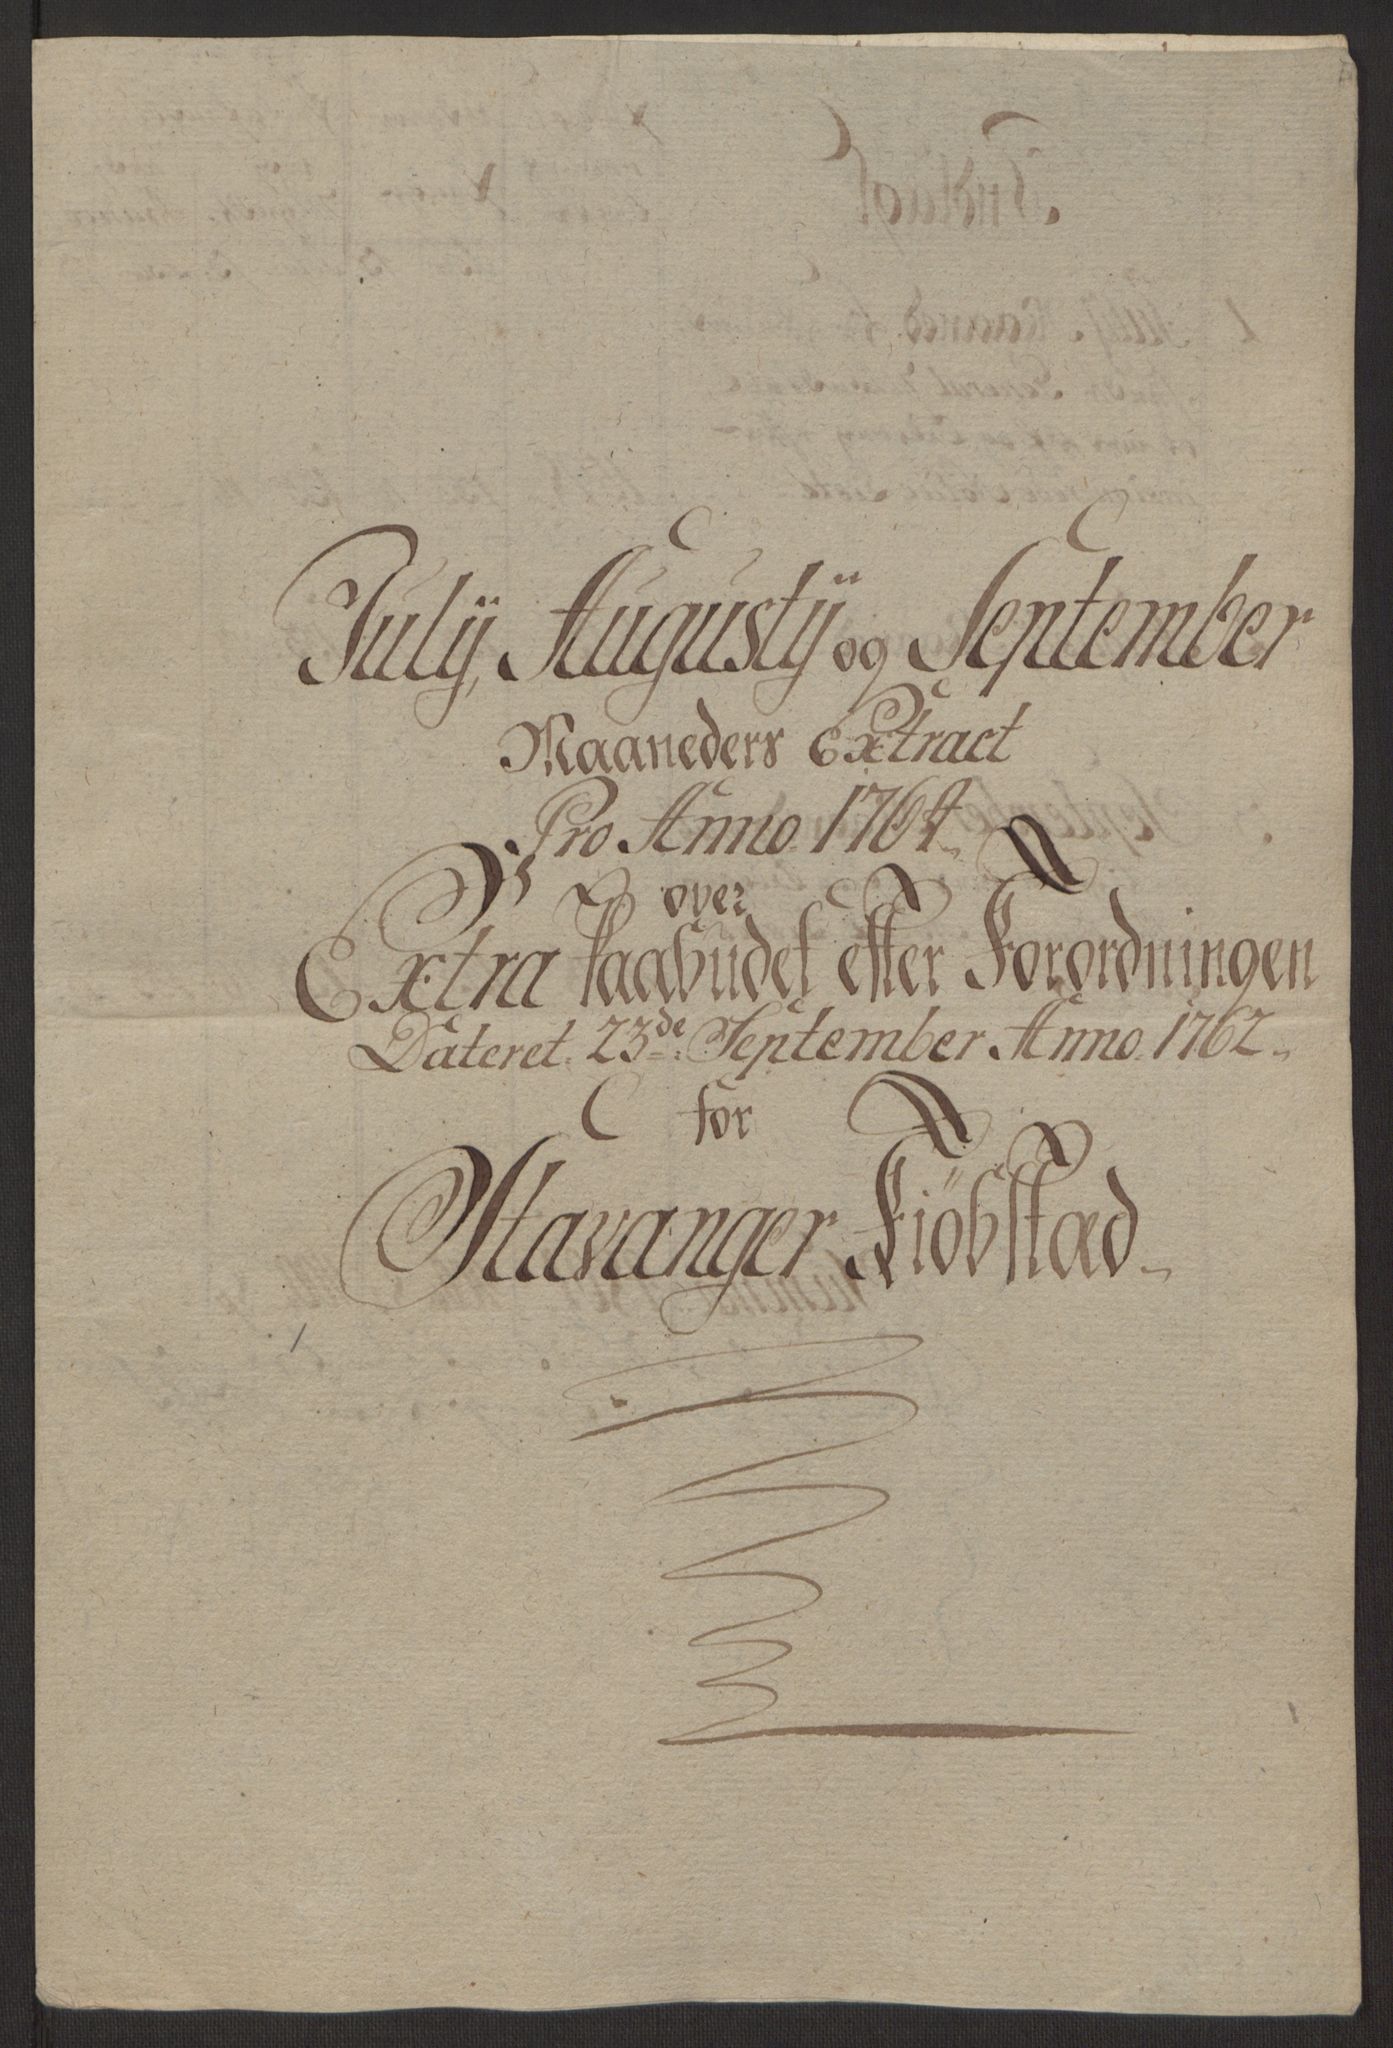 Julÿ, Augustÿ og September
Maaneders Extract
Pro Anno 1764
over
Extra Paabudet efter Forordningen
Dateret 23de September Anno 1762
for
Stavanger Kiöbstad